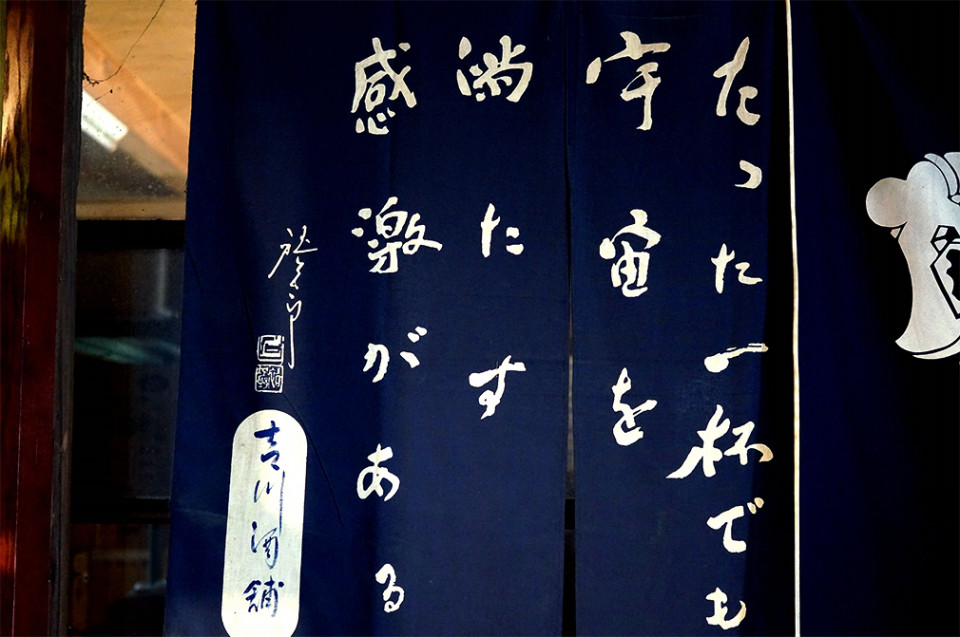 たった一杯でも
宇宙を
満たす
感激がある
吉川酒舗